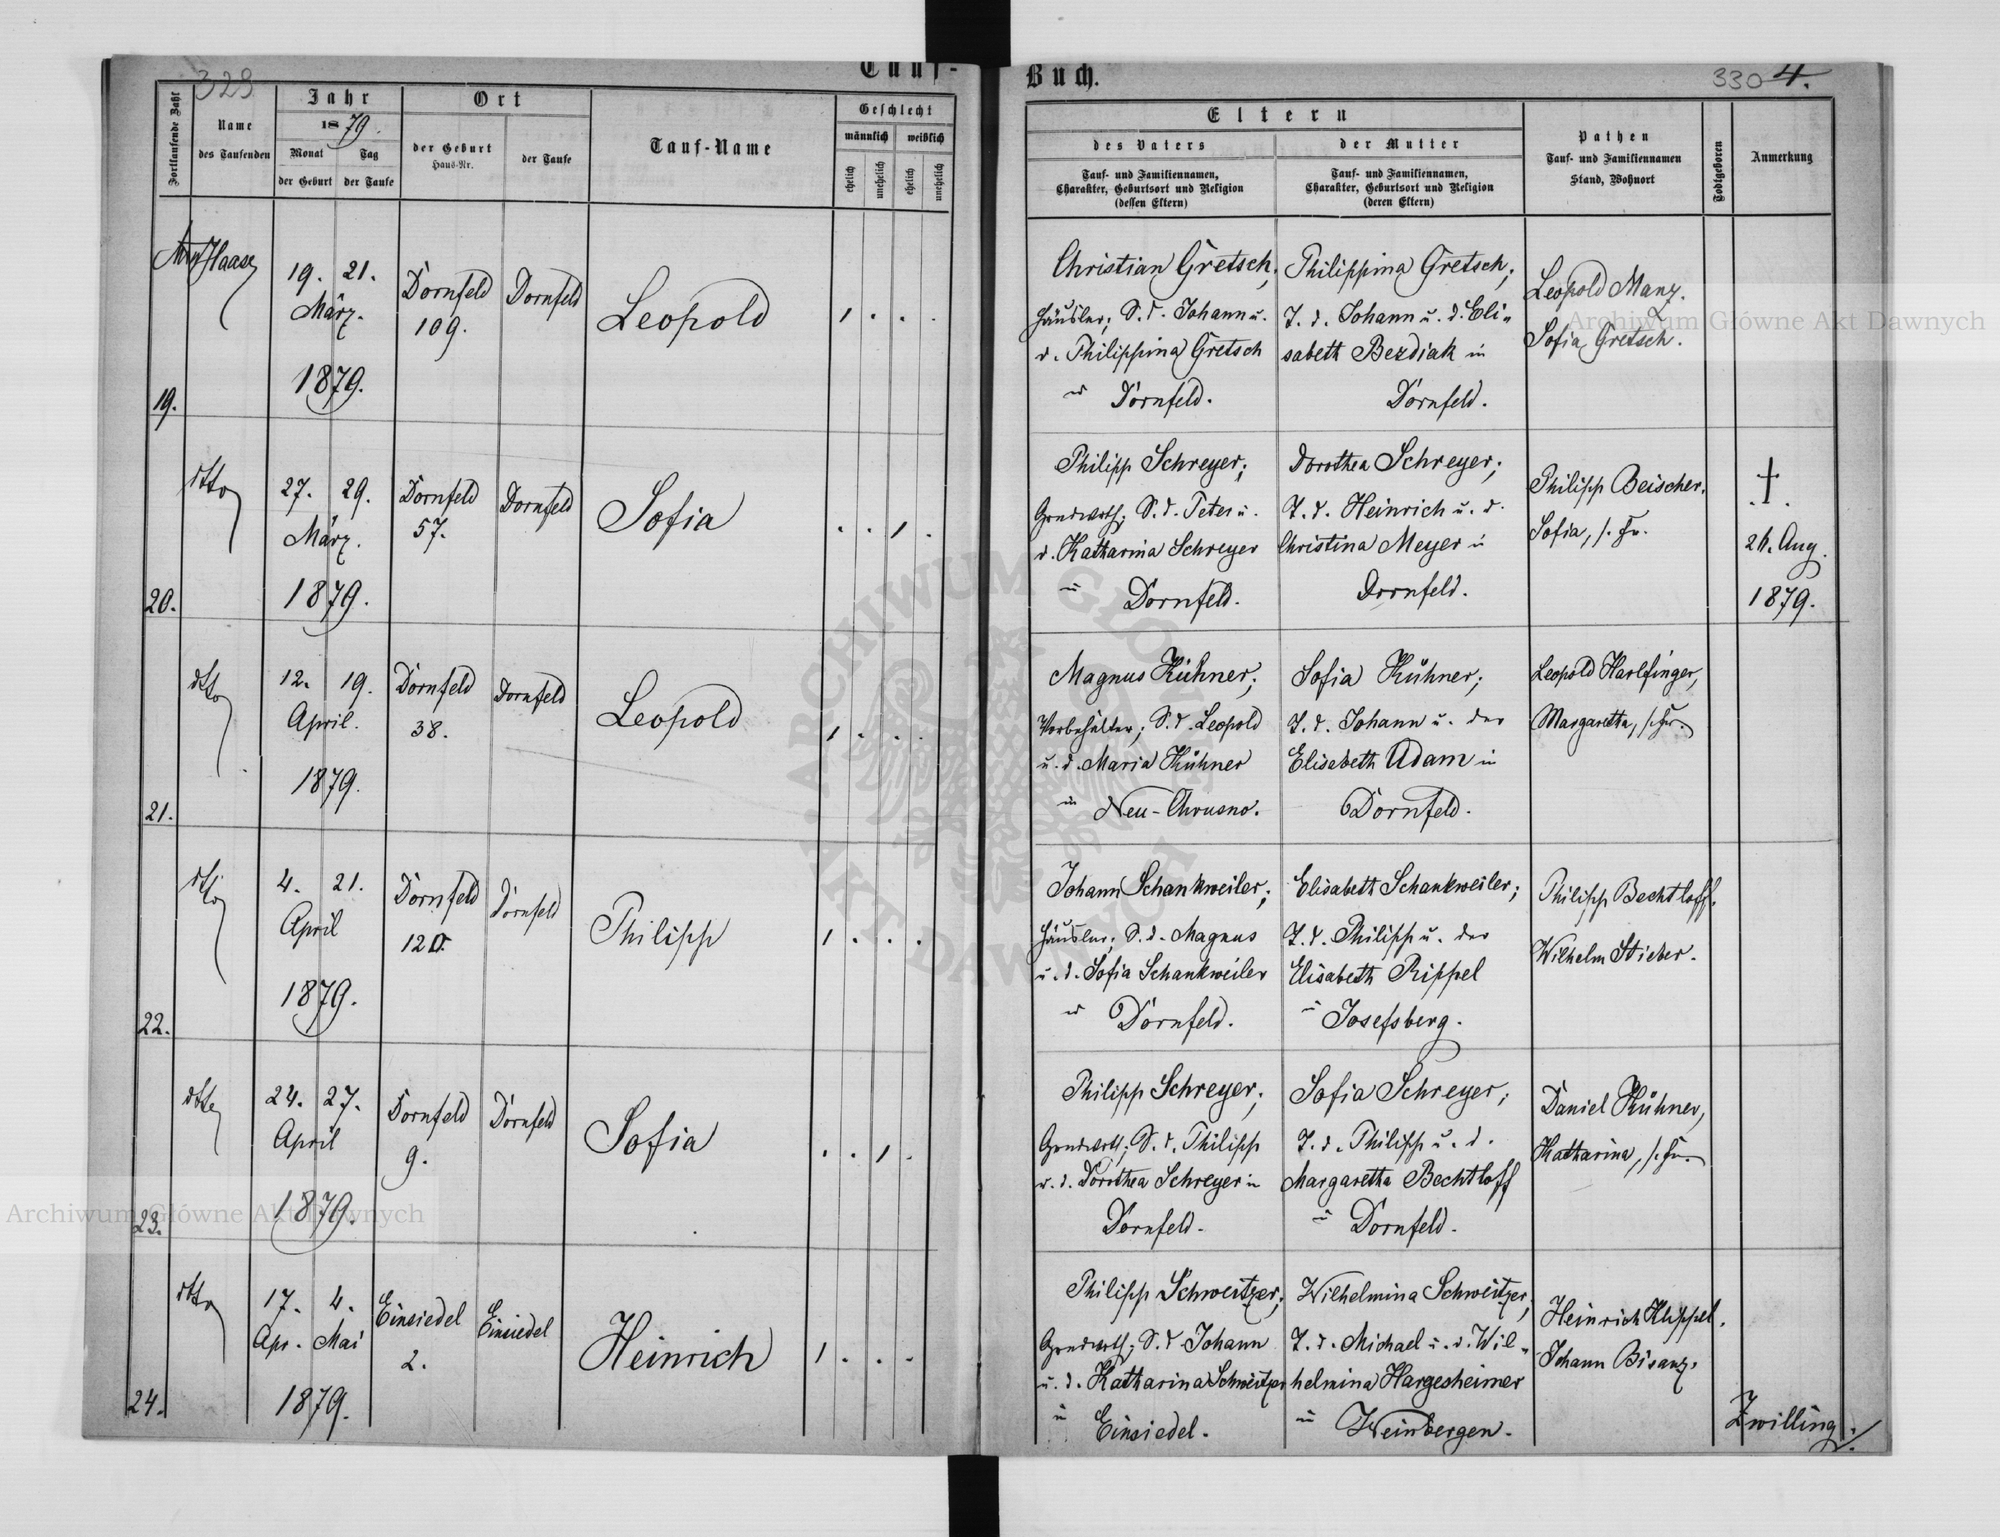 Tauf-
329
Fortlaufende Zahl
Name
des Taufenden
Jahr
1879.
Monat
Tag
der Geburt
der Taufe
Ort
der Geburt
Haus-Nr.
der Taufe
Tauf-Name
Geschlecht
männlich
weiblich
ehelich
unehelich
ehelich
unehelich
19.
Haase
19. 21.
März.
1879.
Dornfeld
109.
Dornfeld
Leopold
1 . . .
20.
dtto
27. 29.
März.
1879.
Dornfeld
57.
Dornfeld
Sofia
. . 1 .
21.
dtto
12. 19.
April.
1879.
Dornfeld
38.
Dornfeld
Leopold
1 . . .
22.
dtto
4. 21.
April
1879.
Dornfeld
120.
Dornfeld
Philipp
1 . . .
23.
dtto
24. 27.
April
1879.
Dornfeld
9.
Dornfeld
Sofia
. . 1 .
24.
dtto
17. 4.
Apr. Mai
1879.
Einsiedel
2.
Einsiedel
Heinrich
1 . . .
Buch.
330 4.
Eltern
des Vaters
Tauf- und Familiennamen,
Charakter, Geburtsort und Religion
(dessen Eltern)
der Mutter
Tauf- und Familiennamen,
Charakter, Geburtsort und Religion
(deren Eltern)
Pathen
Tauf- und Familiennamen
Stand, Wohnort
Todtgeboren
Anmerkung
Christian Gretsch;
Häusler; S. d. Johann u.
d. Philippina Gretsch
in Dornfeld.
Philippina Gretsch;
T. d. Johann u. d. Eli-
sabeth Bezdiak in
Dornfeld.
Leopold Manz.
Sofia Gretsch.
Philipp Schreyer;
Grundwirth; S. d. Peter u.
d. Katharina Schreyer
in Dornfeld.
Dorothea Schreyer;
T. d. Heinrich u. d.
Christina Meyer in
Dornfeld.
Philipp Beischer.
Sofia, s. Fr.
†
26. Aug.
1879.
Magnus Kühner;
Vorbehälter; S. d. Leopold
u. d. Maria Kühner
in Neu-Chrusno.
Sofia Kühner;
T. d. Johann u. der
Elisabeth Adam in
Dornfeld.
Leopold Harlfinger,
Margaretha, s. Fr.
Johann Schankweiler;
Häusler; S. d. Magnus
u. d. Sofia Schankweiler
in Dornfeld.
Elisabeth Schankweiler;
T. d. Philipp u. der
Elisabeth Rippel
in Josefsberg.
Philipp Bechtloff.
Wilhelm Stieber.
Philipp Schreyer;
Grundwirth; S. d. Philipp
u. d. Dorothea Schreyer in
Dornfeld.
Sofia Schreyer;
T. d. Philipp u. d.
Margaretha Bechtloff
in Dornfeld.
Daniel Kühner,
Katharina, s. Fr.
Philipp Schweitzer;
Grundwirth; S. d. Johann
u. d. Katharina Schweitzer
in Einsiedel.
Wilhelmina Schweitzer;
T. d. Michael u. d. Wil-
helmina Hargesheimer
in Weinbergen.
Heinrich Klippel.
Johann Bisanz.
Zwilling.
Archiwum Główne Akt Dawnych
Archiwum Główne Akt Dawnych
ARCHIWUM GŁÓWNE AKT DAWNYCH